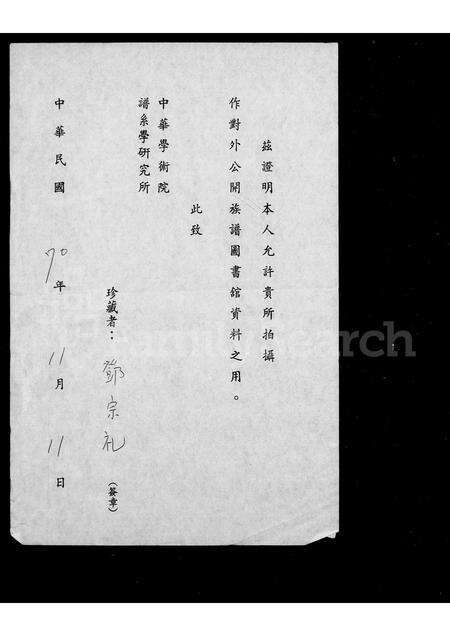 茲證明本人允許貴所拍攝
作對外公開族譜圖書館資料之用。
此致
中華學術院
譜系學研究所
珍藏者：鄧宗礼（簽章）
中華民國70年11月11日